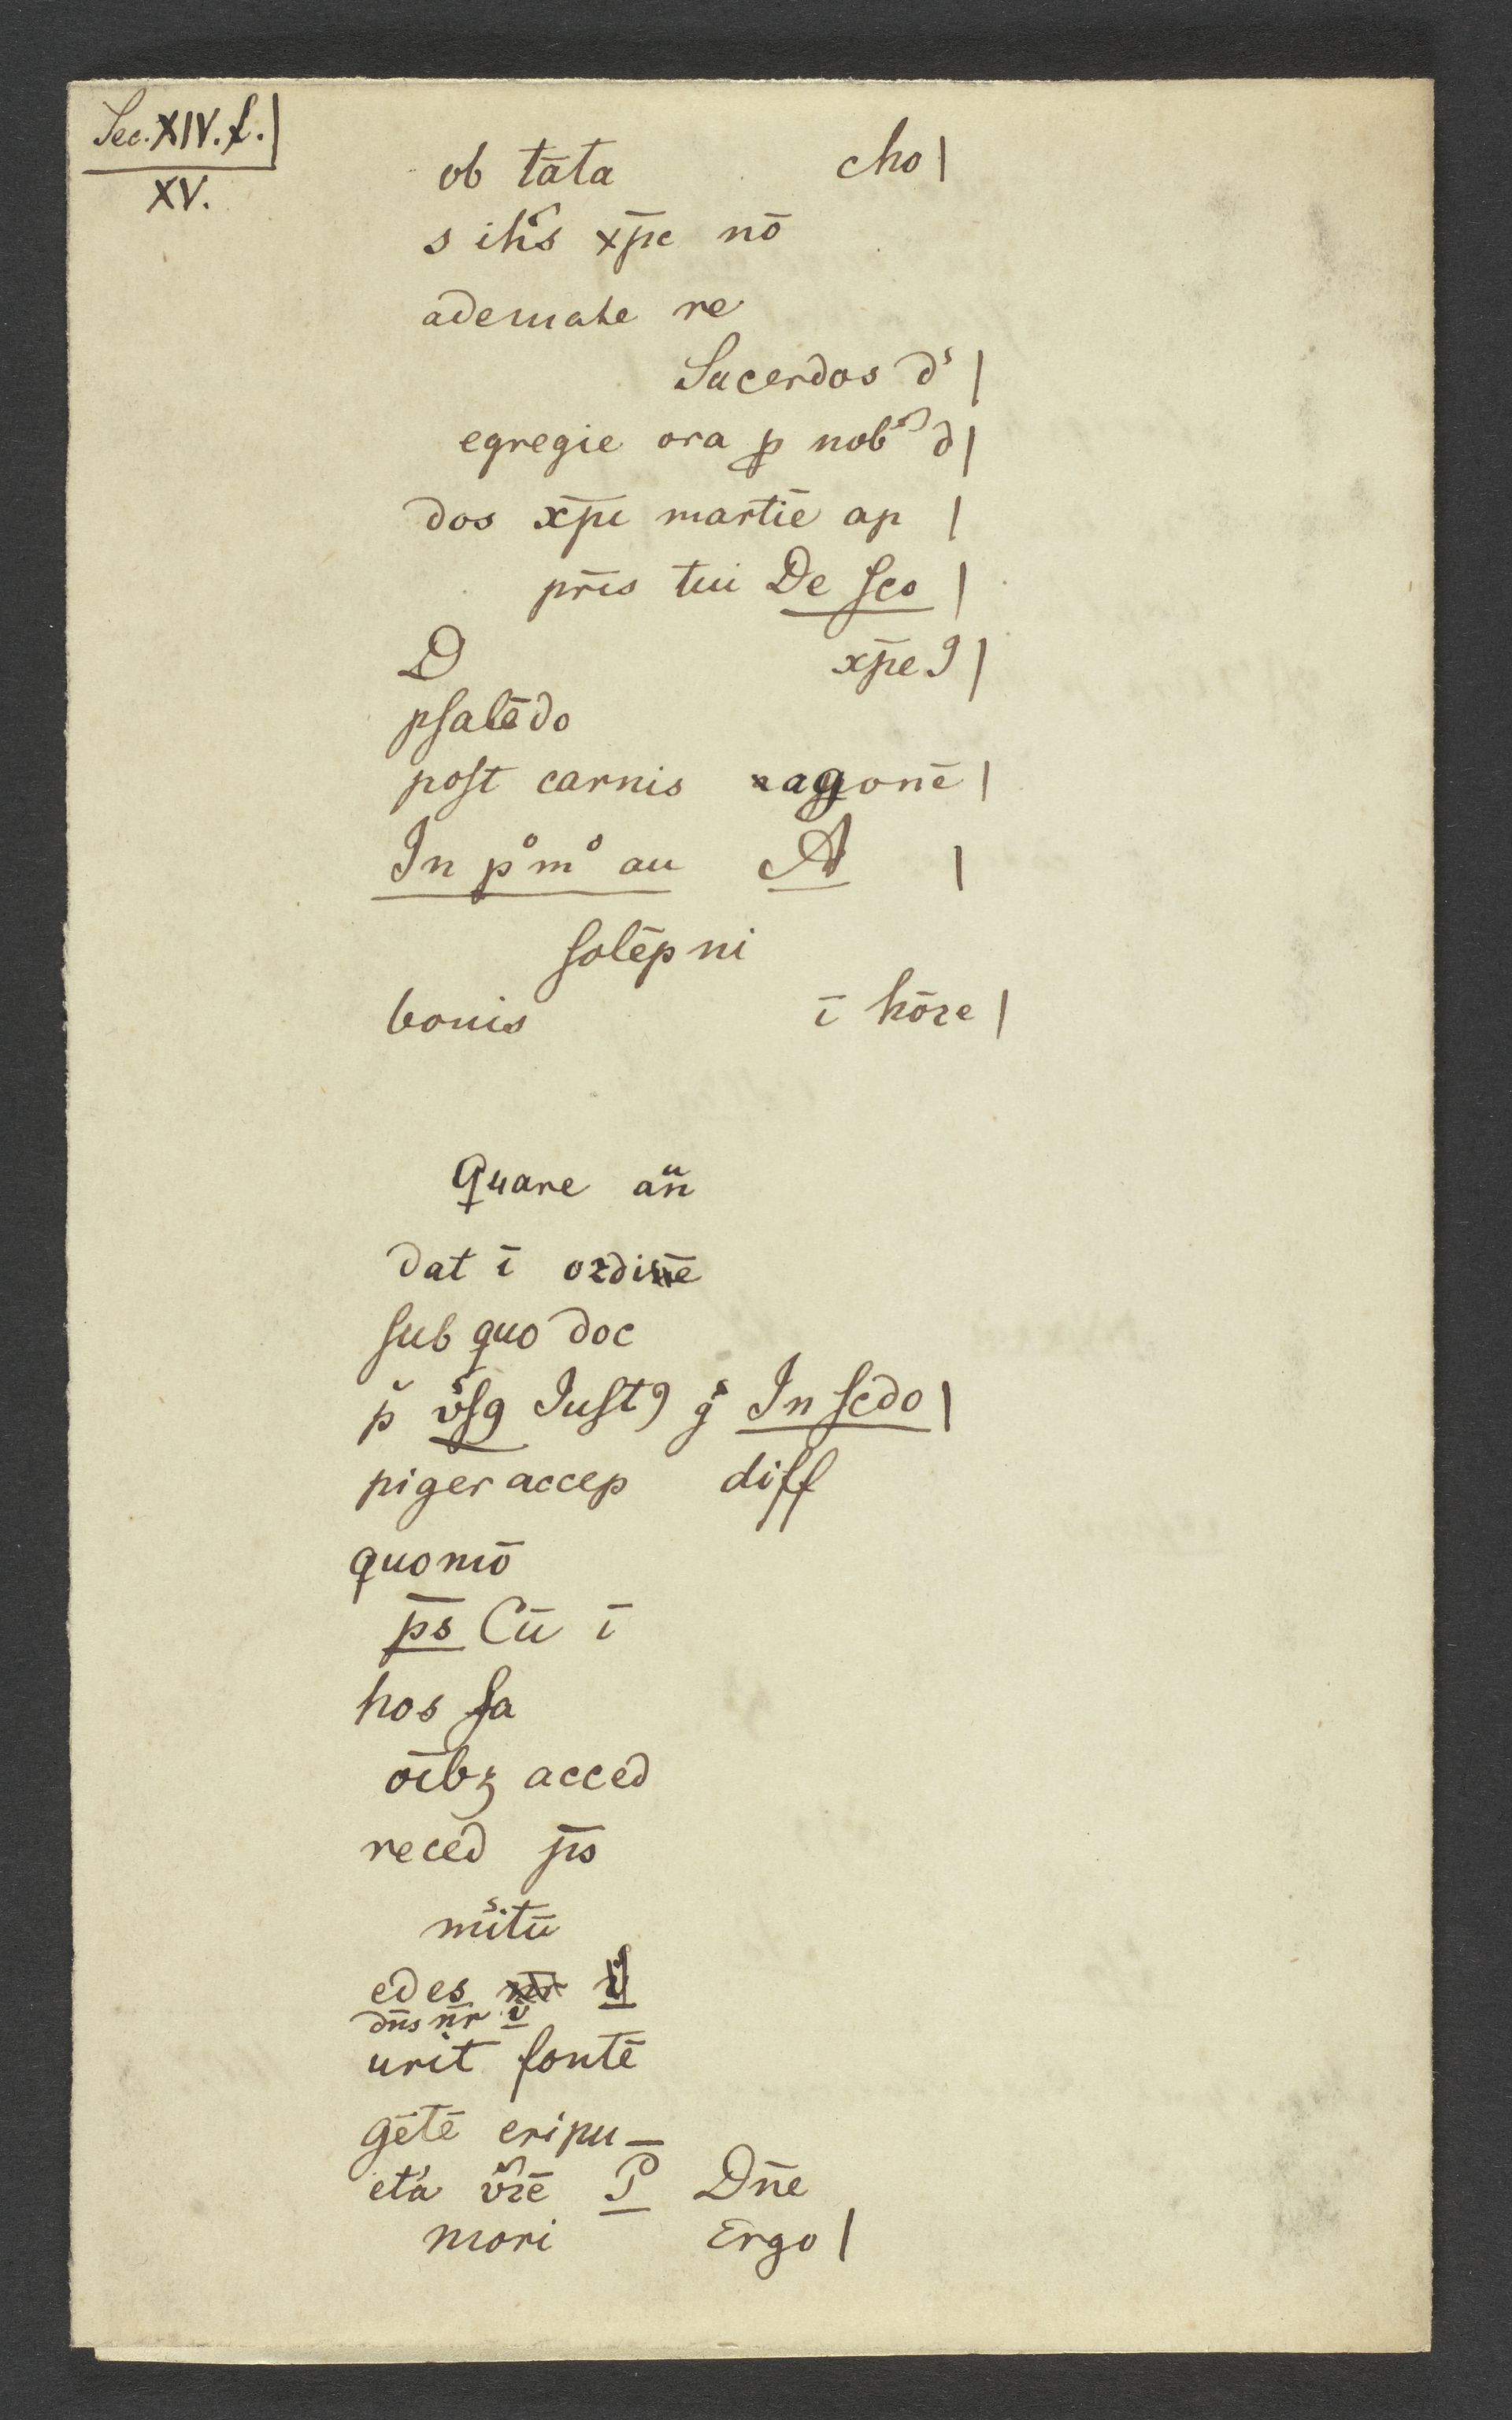 Sec. XIV. f.|
XV.
ob tāta cho|
s ihs xp̄c nō
ademate re
Sacerdos ds|
egregie ora ꝓ nob d|
dos xp̄i martiē ap|
pr̄is tui De ſco|
D xp̄e 9|
pſalēdo
poſt carnis agonē|
In pᵒmᵒ au A|
ſolēpni
bonis ī hōꝛe|
Quare an̄
dat ī oꝛdinē
ſub quo doc
p vſ9 Iuſt9 g In ſcdo|
piger accep diff
quomō
p̄s Cū ī
hos ſa
oībꝫ acced
reced p̄s
mitū
edes
dn̄s nr̄ v
urit fontē
gētē eripu—
eta vꝛē P Dn̄e
mori Ergo|